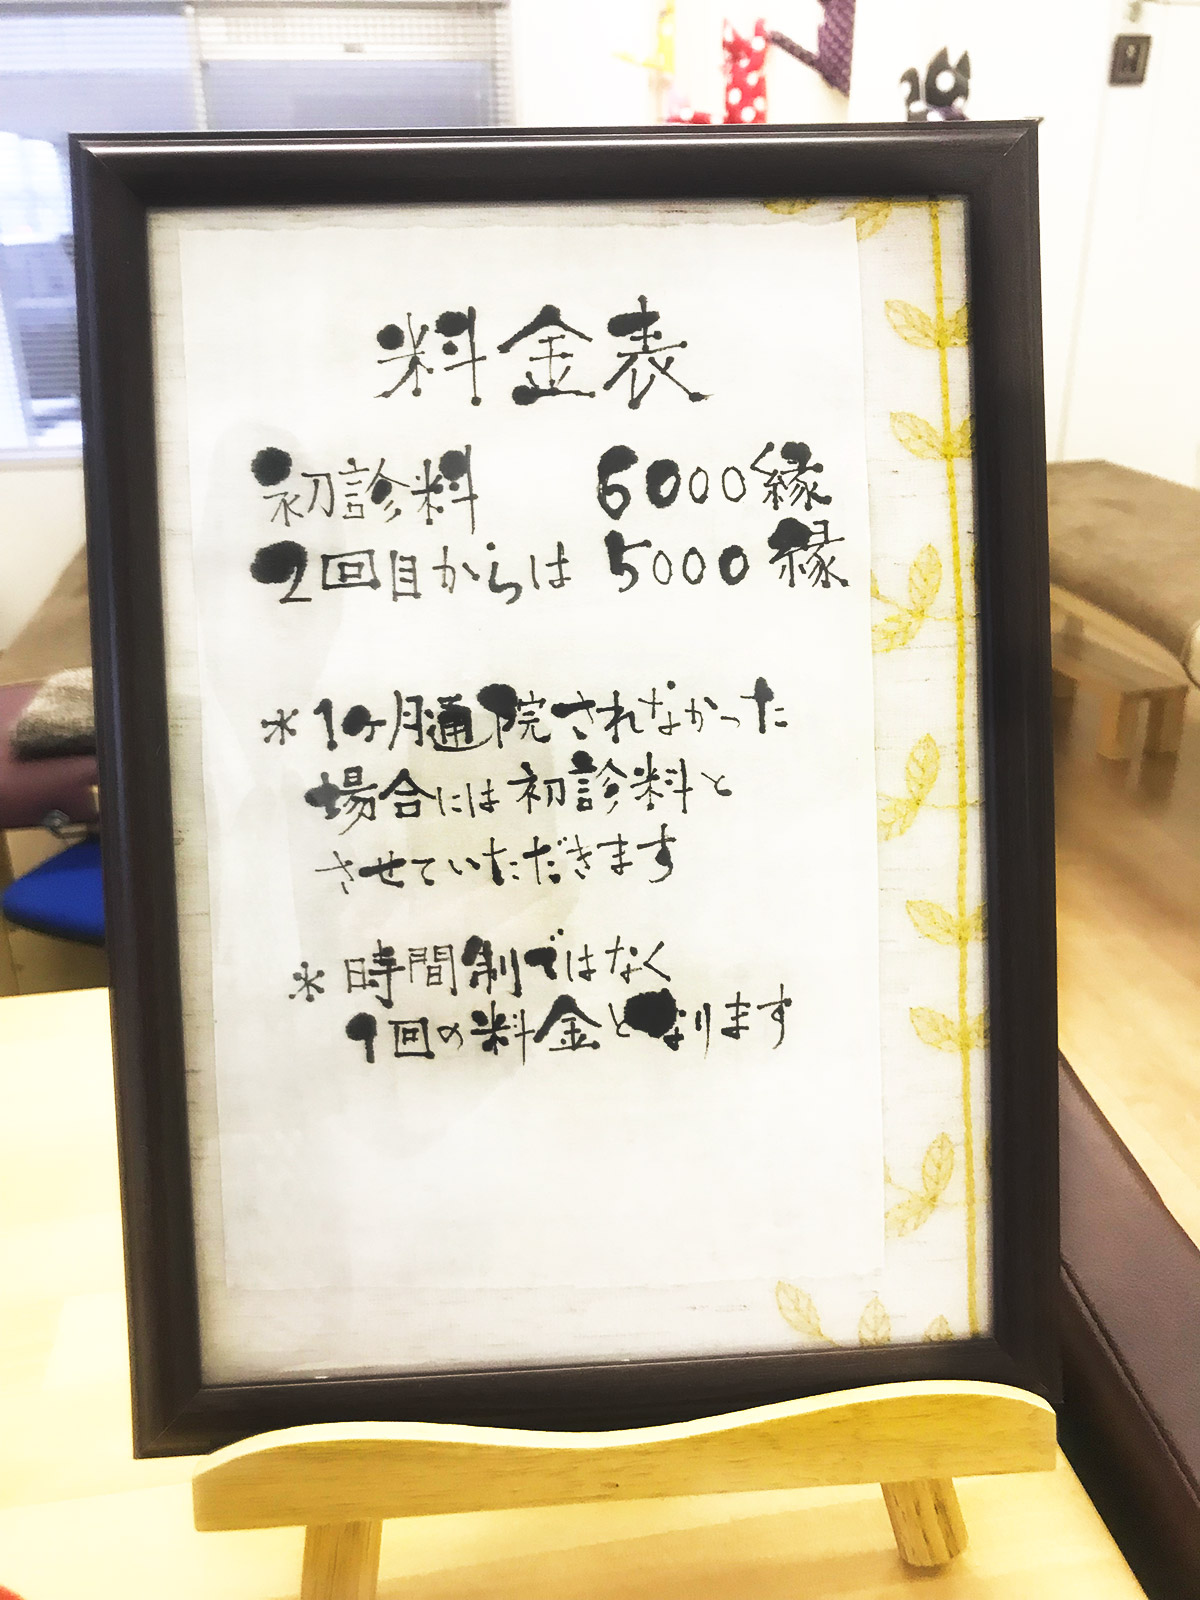 料金表
初診料 6000縁
2回目からは 5000縁
＊1ヶ月通院されなかった
場合には初診料と
させていただきます
＊時間制ではなく
1回の料金となります